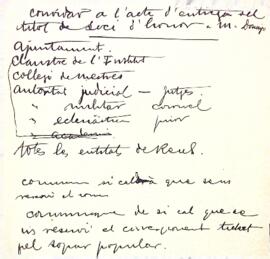 convidar a l'acte d'entrega del
títol de Soci d'honor a M.
Ajuntament.
Claustre de l'Institut
Col·legi de Mestres
Autoritat judicial — Jutge
" militar Coronel
" eclesiàstica prior
" academi
Totes les entitats de Reus.
comunicar si caldrà que se'ns
reservi el
comuniqueu de si cal que se
us reservi el corresponent ticket
pel sopar popular.